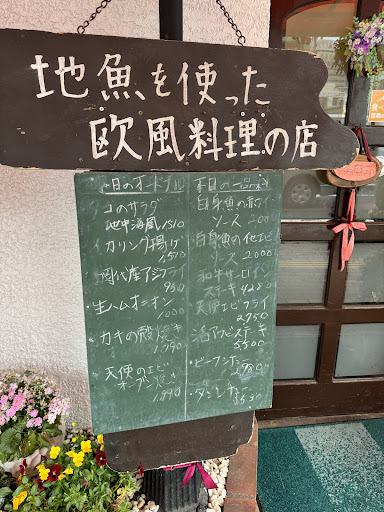 地魚を使った
欧風料理の店
本日のオードブル
タコのサラダ
地中海風 1510
イカリング揚げ
1,570
アジフライ
930
・生ハムオニオン
1000
・カキの殻焼き
1,790
天使のエビ
オーブン焼き
1,890
本日の一品料理
白身魚の赤ワイン
ソース
白身魚の他エビ
ソース 2000
和牛サーロイン
ステーキ 4280
天使エビフライ
2750
活アワビステーキ
5500
・ビーフシチュー
2980
・タンシチュー